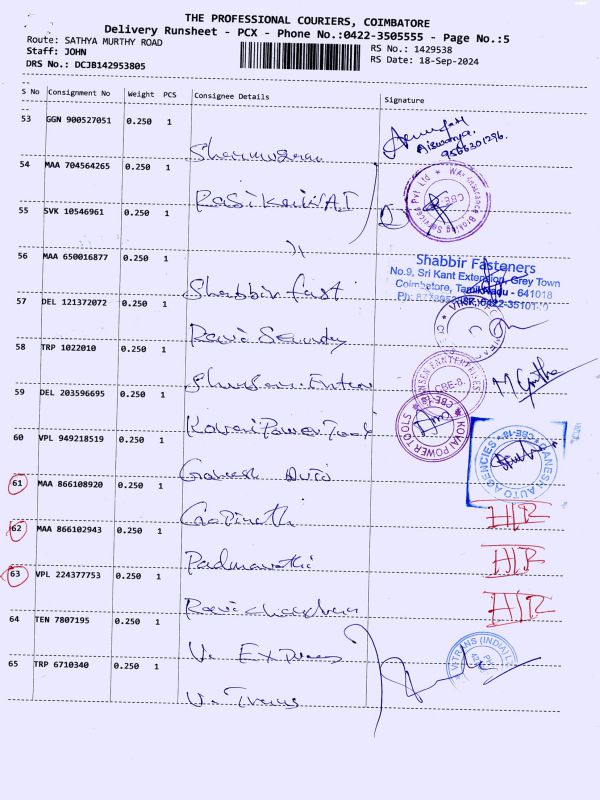 THE PROFESSIONAL COURIERS, COIMBATORE
Delivery Runsheet - PCX - Phone No.:0422-3505555 - Page No.:5
Route: SATHYA MURTHY ROAD
Staff: JOHN
DRS No.: DCJB142953805
RS No.: 1429538
RS Date: 18-Sep-2024
S No Consignment No Weight PCS Consignee Details Signature
53 GGN 900527051 0.250 1 Shanmugam
Aiswarya.
9566301296.
54 MAA 704564265 0.250 1
55 SVK 10546961 0.250 1
56 MAA 650016877 0.250 1 Shabbir fast
Shabbir Fasteners
No.9, Sri Kant Extension, Grey Town
Coimbatore, Tamilnadu - 641018
57 DEL 121372072 0.250 1
58 TRP 1022010 0.250 1
CBE-8.
M
59 DEL 203596695 0.250 1 Kovai Power Tools
KOVAI POWER TOOLS
CBE-18
60 VPL 949218519 0.250 1 Ganesh Auto
GANESH AUTO AGENCIES
CBE-18
61 MAA 866108920 0.250 1 Gopinath
62 MAA 866102943 0.250 1 Padmavathi
63 VPL 224377753 0.250 1
64 TEN 7807195 0.250 1 V. Express
65 TRP 6710340 0.250 1 V. Trans
V-TRANS (INDIA) L